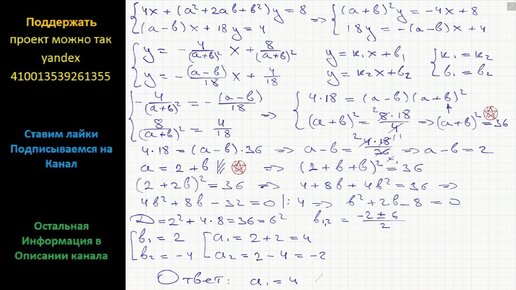 Поддержать
проект можно так
yandex
410013539261355
Ставим лайки
Подписываемся на
Канал
Остальная
Информация в
Описании канала
{4x + (a²+2ab+b²)y = 8
(a-b)x + 18y = 4
=> {(a+b)²y = -4x + 8
18y = -(a-b)x + 4
{y = -4/(a+b)² x + 8/(a+b)²
y = -(a-b)/18 x + 4/18
y = k₁x + b₁
y = k₂x + b₂
{k₁ = k₂
b₁ = b₂
{-4/(a+b)² = -(a-b)/18
8/(a+b)² = 4/18
=> {4·18 = (a-b)(a+b)²
(a+b)² = 8·18/4 => (a+b)² = 36
4·18 = (a-b)·36 => a-b = 4·18/36 => a-b = 2
a = 2+b => (2+b+b)² = 36
(2+2b)² = 36 => 4+8b+4b² = 36 =>
4b²+8b-32 = 0 |:4 => b²+2b-8 = 0
D = 2²+4·8 = 36 = 6² b₁,₂ = (-2±6)/2
[b₁ = 2
b₂ = -4
[a₁ = 2+2 = 4
a₂ = 2-4 = -2
Ответ: a₁ = 4